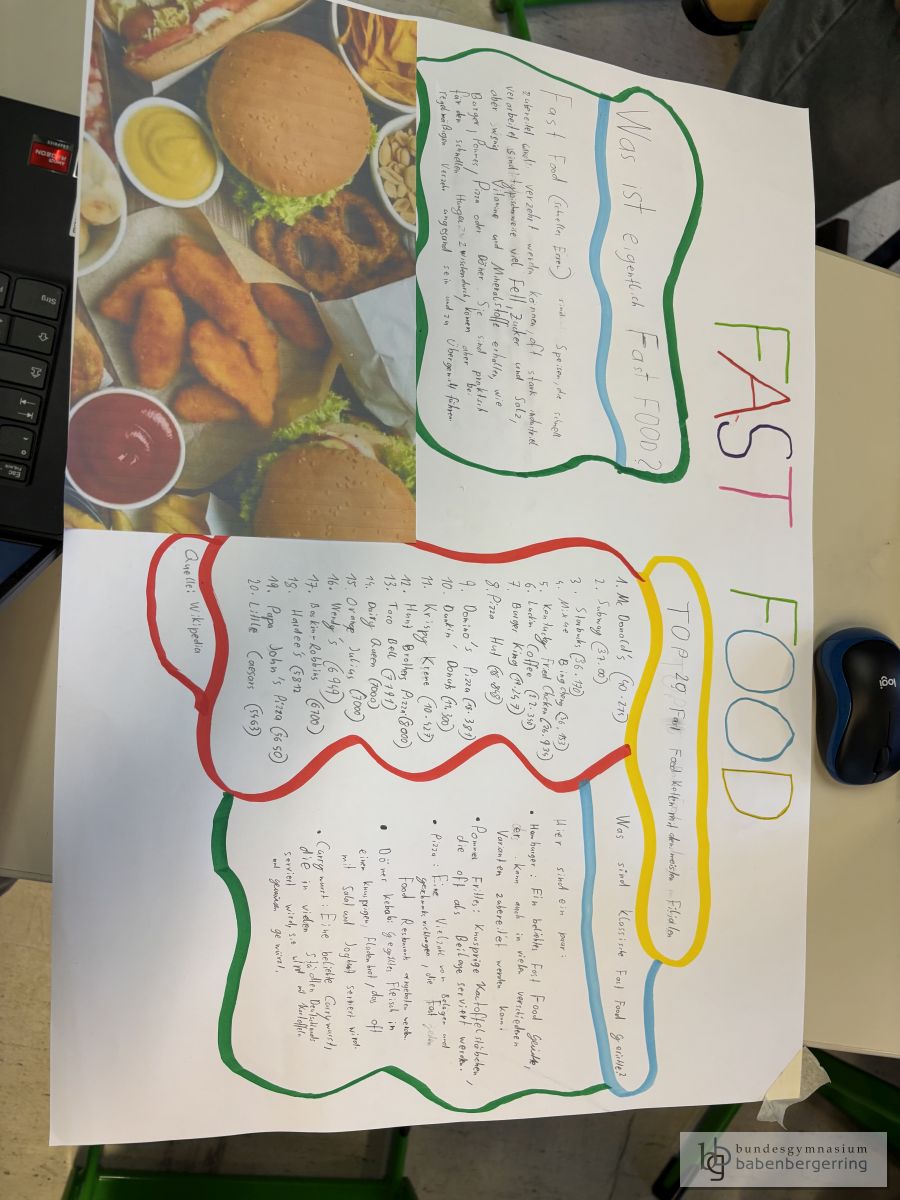 FAST FOOD
Was ist eigentlich Fast FOOD?
Fast Food (schnelles Essen) sind Speisen, die schnell
zubereitet und verzehrt werden können, oft stark industriell
verarbeitet sind, typischerweise viel Fett, Zucker und Salz,
aber wenig Vitamine und Mineralstoffe enthalten, wie
Burger, Pommes, Pizza oder Döner. Sie sind praktisch
für den schnellen Hunger zwischendurch, können aber bei
regelmäßigen Verzehr ungesund sein und zu Übergewicht führen.
TOPT 29 Fast Food-Ketten mit den meisten Filialen
1. Mc Donald's (40.275)
2. Subway (37.00)
3. Starbuks (36.170)
4. Mixue Bing Cheng (26.153)
5. Kentucky Fried Chicken (26.934)
6. Luckin Coffee (22.340)
7. Burger King (19.247)
8. Pizza Hut (18.848)
9. Domino's Pizza (18.381)
10. Dunkin' Donuts (11.30)
11. Krispy Kreme (10.427)
12. Hung Brothers Pizza (8.000)
13. Taco Bell (7791)
14. Dairy Queen (7000)
15. Orange Julius (7000)
16. Wendy's (6949)
17. Baskin-Robbins (6700)
18. Hardee's (5812)
19. Papa John's Pizza (5650)
20. Little Caesars (5463)
Quelle: Wikipedia
Was sind klassische Fast Food gerichte?
Hier sind ein paar:
• Hamburger: Ein beliebtes Fast Food
der kann auch in vielen verschiedenen
Varianten zubereitet werden kann.
• Pommes Frittes: Knusprige Kartoffelstäbchen,
die oft als Beilage serviert werden.
• Pizza: Eine Vielzahl von Belägen und
geschmacksrichtungen, die Fast jeden
Food Restaurant angeboten werden.
• Döner kebab: Gegrilltes Fleisch in
einem knusprigen Fladenbrot, das oft
mit Salat und Joghurt serviert wird.
• Currywurst: Eine beliebte Currywurst,
die in vielen städten Deutschlands
serviert wird, sie wird mit Kartoffeln
und gewürzen gewürzt.
Strg
Esc
FnLock
AMD
RADEON
GRAPHICS
logi
bg
bundesgymnasium
babenbergerring